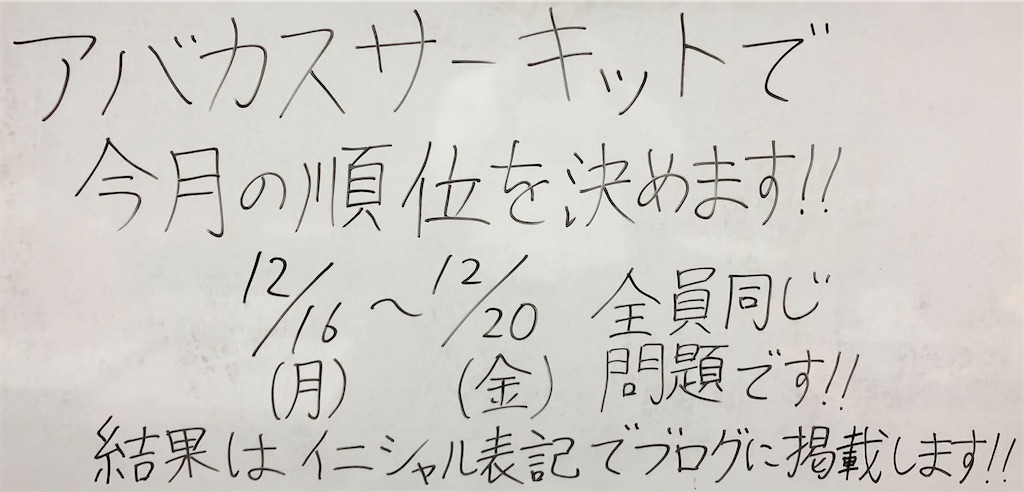 アバカスサーキットで
今月の順位を決めます!!
12/16(月)〜12/20(金) 全員同じ
問題です!!
結果はイニシャル表記でブログに掲載します!!